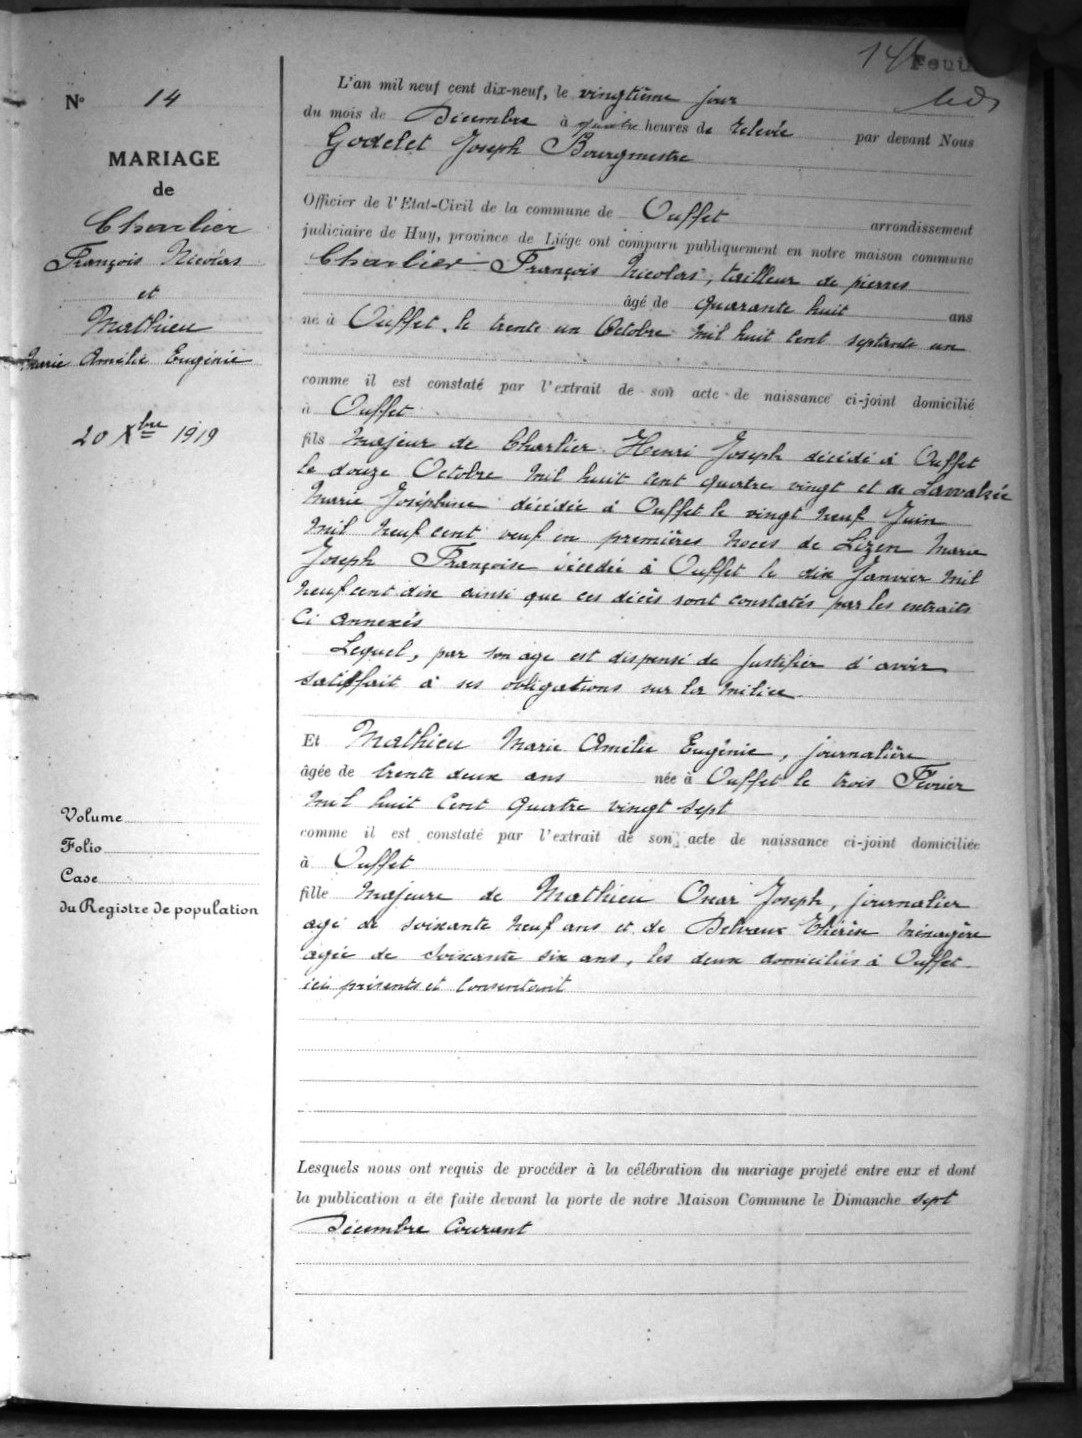 14 Feuil
N° 14
MARIAGE
de
Charlier
François Nicolas
et
Mathieu
Marie Amélie Eugénie
20 Xbre 1919
Volume
Folio
Case
du Registre de population
L'an mil neuf cent dix-neuf, le vingtième jour
du mois de Décembre à quatre heures de relevée par devant Nous
Godelet Joseph Bourgmestre
Officier de l'Etat-Civil de la commune de Ouffet arrondissement
judiciaire de Huy, province de Liége ont comparu publiquement en notre maison commune
Charlier François Nicolas, tailleur de pierres
âgé de quarante huit ans
né à Ouffet, le trente un Octobre mil huit cent septante un
comme il est constaté par l'extrait de son acte de naissance ci-joint domicilié
à Ouffet
fils majeur de Charlier Henri Joseph décédé à Ouffet
le douze Octobre mil huit cent quatre vingt et de
Marie Joséphine décédée à Ouffet le vingt neuf Juin
mil neuf cent veuf en premières noces de Lizen Marie
Joseph Françoise décédée à Ouffet le dix Janvier mil
neuf cent dix ainsi que ces décès sont constatés par les extraits
ci annexés
Lequel, par son age est dispensé de justifier d'avoir
satisfait à ses obligations sur la milice
Et Mathieu Marie Amélie Eugénie, journalière
âgée de trente deux ans née à Ouffet le trois Février
mil huit Cent quatre vingt sept
comme il est constaté par l'extrait de son acte de naissance ci-joint domiciliée
à Ouffet
fille majeure de Mathieu Joseph, journalier
agé de soixante neuf ans et de Delvaux Thérèse ménagère
agée de soixante six ans, les deux domiciliés à Ouffet
ici présents et consentant
Lesquels nous ont requis de procéder à la célébration du mariage projeté entre eux et dont
la publication a éte faite devant la porte de notre Maison Commune le Dimanche sept
Décembre Courant